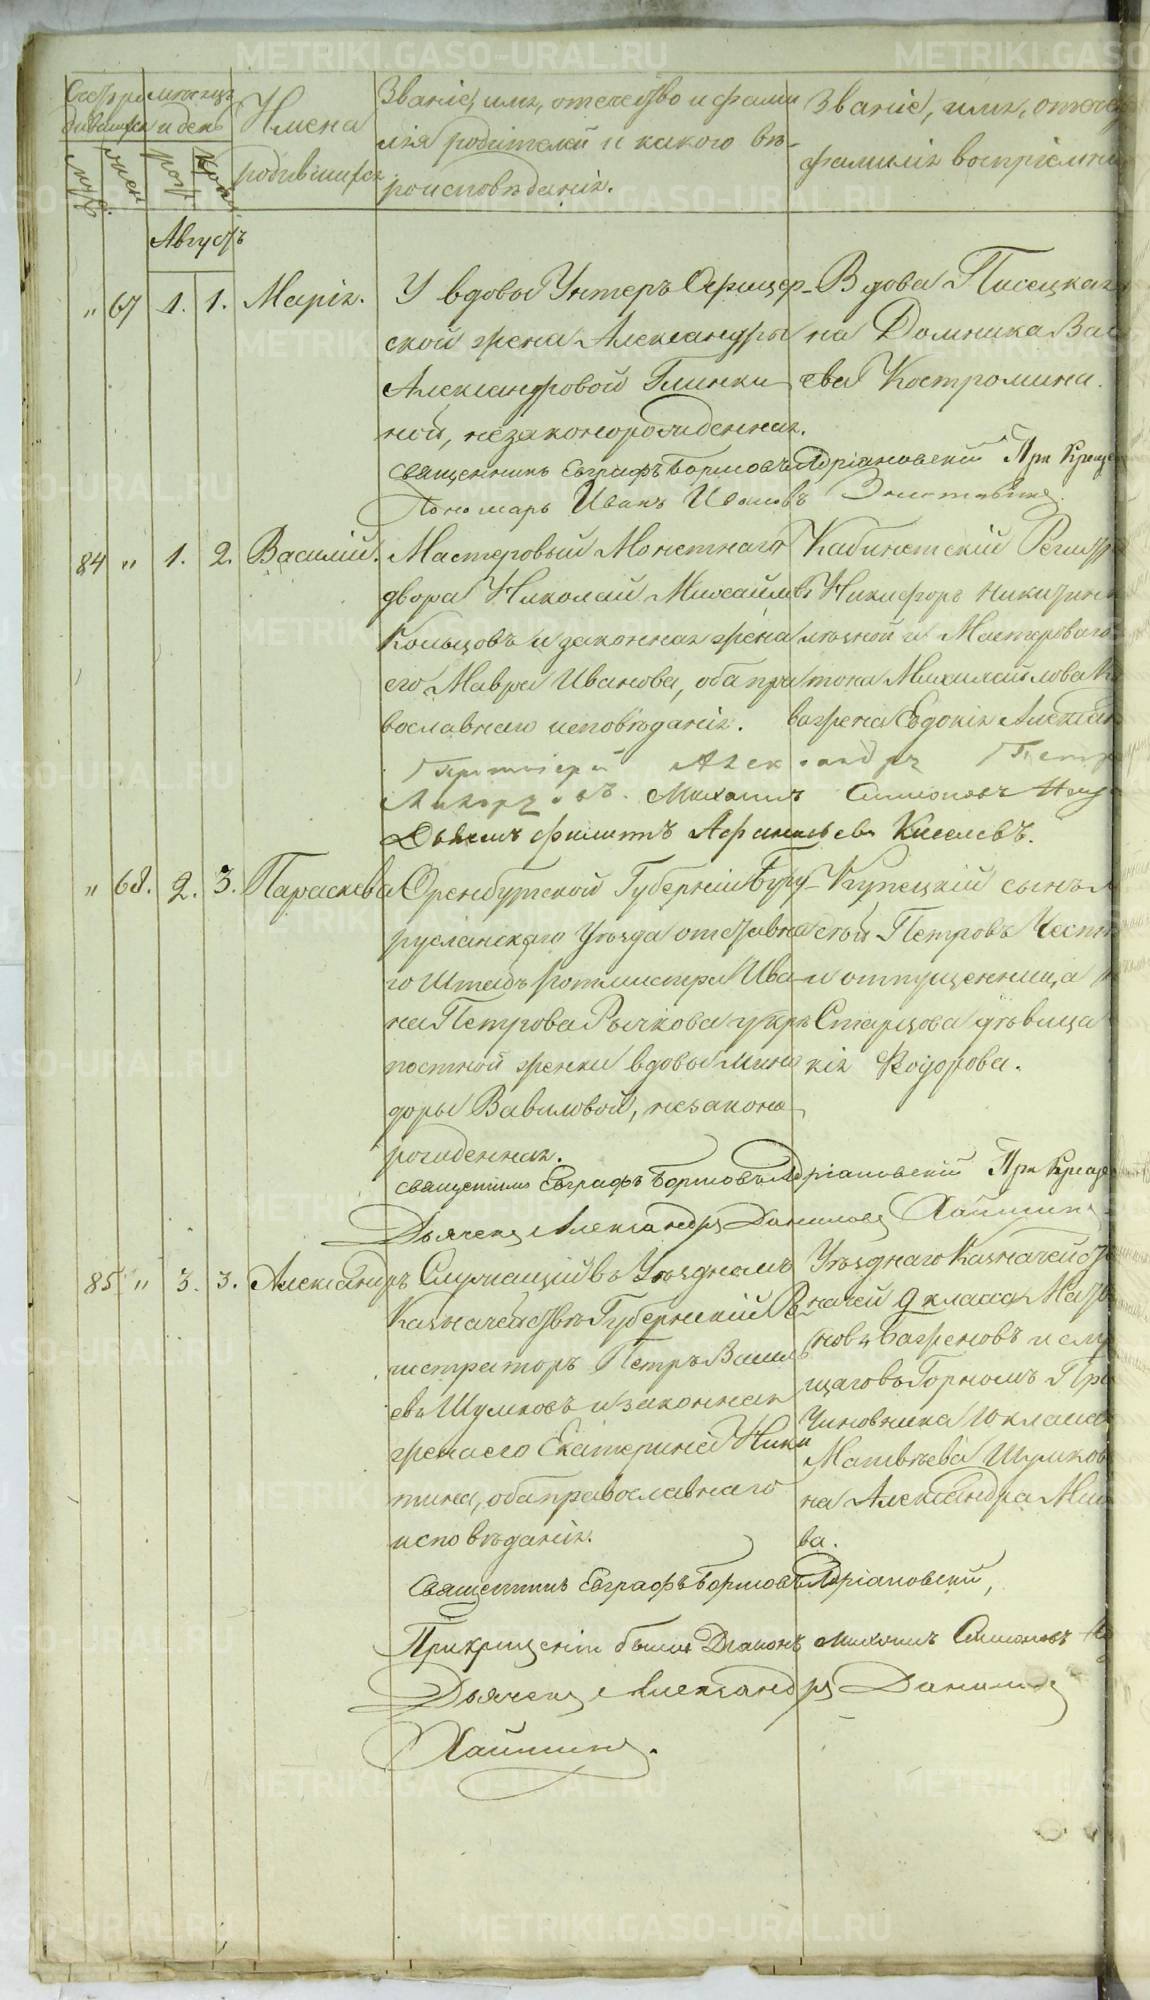 Счетъ ро мѣсяцъ
дившихся и день
муж. жен. рож. крещ.
Имена
родившихся
Званіе, имя, отечество и фами
лія родителей и какого вѣ-
роисповѣданія.
Званіе, имя, отече
фамилія воспріемни
Августъ
" 67 1. 1. Марія.
У вдовы Унтеръ Офицер-
ской жена Александры
Александровой Глинки
ной, незаконорожденная.
Вдова Писецкая
на Домника Ва
ева Костромина.
Священникъ Евграфъ Борисовъ Адріановскій При Креще
Пономарь Иванъ Ивановъ
84 " 1. 2. Василій.
Мастеровый Монетнаго
двора Николай Михайловъ
Кольцовъ и законная жена
его Мавра Иванова, оба пра
вославнаго исповѣданія.
Кабинетскій Регистр
Никифоръ Никитинъ
и Мастероваго
тона Михайлова К
ва жена Евдокія Алексѣ
Протоіерей Александръ Петр
Михаилъ Симоновъ
Дьячекъ Филиппъ Афанасьевъ Киселевъ.
" 68. 2. 3. Параскева
Оренбургской Губерніи Бугу-
русланскаго Уѣзда отставна
го Штабъ Ротмистра Ива-
на Петрова Рычкова у крѣ
постной женки вдовы Мино
доры Вавиловой, незаконо
рожденная.
Купецкій сынъ
Петровъ
и отпущенница
Старцова дѣвица
кія Ѳедорова.
Священникъ Евграфъ Борисовъ Адріановскій При Креще
Дьячекъ Александръ Даниловъ Хаймин
85 " 3. 3. Александръ
Служащій въ Уѣздномъ
Казначействѣ Губернскій Ре
гистраторъ Петръ Василь
евъ Шулковъ и законная
жена его Екатерина Ники
тина, оба православнаго
исповѣданія.
Уѣзднаго Казначейст
начей 9 класса Мат
новъ Баженовъ и слу
щаго въ Горномъ Пра
Чиновника 10 класса
Матвѣева Шулков
на Александра Ми
ва.
Священникъ Евграфъ Борисовъ Адріановскій,
При крещеніи были Діаконъ Михаилъ Симоновъ
Дьячекъ Александръ Даниловъ
Хайминъ.
METRIKI.GASO-URAL.RU